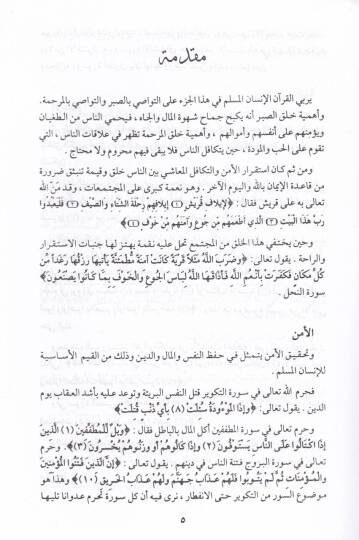 مقدمة
يربي القرآن الإنسان المسلم في هذا الجزء على التواصي بالصبر والتواصي بالمرحمة.
وأهمية خلق الصبر أنه يكبح جماح شهوة المال والجاه ، فيحمي الناس من الطغيان
ويؤمنهم على أنفسهم وأموالهم ، وأهمية خلق المرحمة تظهر في علاقات الناس ، التي
تقوم على الحب والمودة ، حين يتكافل الناس فلا يبقى فيهم محروم ولا محتاج .
ومن ثم كان استقرار الأمن والتكافل المعاشي بين الناس خلق وقيمة تنبثق ضرورة
من قاعدة الإيمان بالله واليوم الآخر . وهو نعمة كبرى على المجتمعات ، وقد مَنّ الله
تعالى به على قريش فقال : ﴿لِإِيلَافِ قُرَيْشٍ (١) إِيلَافِهِمْ رِحْلَةَ الشِّتَاءِ وَالصَّيْفِ (٢) فَلْيَعْبُدُوا
رَبَّ هَذَا الْبَيْتِ (٣) الَّذِي أَطْعَمَهُمْ مِنْ جُوعٍ وَآمَنَهُمْ مِنْ خَوْفٍ (٤)﴾
وحين يختفي هذا الخلق من المجتمع تحل عليه نقمة يهتز لها جنبات الاستقرار
والراحة . يقول تعالى: ﴿وَضَرَبَ اللَّهُ مَثَلًا قَرْيَةً كَانَتْ آمِنَةً مُطْمَئِنَّةً يَأْتِيهَا رِزْقُهَا رَغَدًا مِنْ
كُلِّ مَكَانٍ فَكَفَرَتْ بِأَنْعُمِ اللَّهِ فَأَذَاقَهَا اللَّهُ لِبَاسَ الْجُوعِ وَالْخَوْفِ بِمَا كَانُوا يَصْنَعُونَ﴾
سورة النحل .
الأمن
وتحقيق الأمن يتمثل في حفظ النفس والمال والدين وذلك من القيم الأساسية
للإنسان المسلم .
فحرم الله تعالى في سورة التكوير قتل النفس البريئة وتوعد عليه بأشد العقاب يوم
الدين . يقول تعالى: ﴿وَإِذَا الْمَوْءُودَةُ سُئِلَتْ (٨) بِأَيِّ ذَنْبٍ قُتِلَتْ﴾
وحرم تعالى في سورة المطففين أكل المال بالباطل فقال : ﴿وَيْلٌ لِلْمُطَفِّفِينَ (١) الَّذِينَ
إِذَا اكْتَالُوا عَلَى النَّاسِ يَسْتَوْفُونَ (٢) وَإِذَا كَالُوهُمْ أَوْ وَزَنُوهُمْ يُخْسِرُونَ (٣)﴾. وحرم
تعالى في سورة البروج فتنة الناس في دينهم . يقول تعالى : ﴿إِنَّ الَّذِينَ فَتَنُوا الْمُؤْمِنِينَ
وَالْمُؤْمِنَاتِ ثُمَّ لَمْ يَتُوبُوا فَلَهُمْ عَذَابُ جَهَنَّمَ وَلَهُمْ عَذَابُ الْحَرِيقِ (١٠)﴾ وهذا هو
موضوع السور من التكوير حتى الانفطار ، نرى فيه أن كل سورة تحرم عدوانا تليها
٥